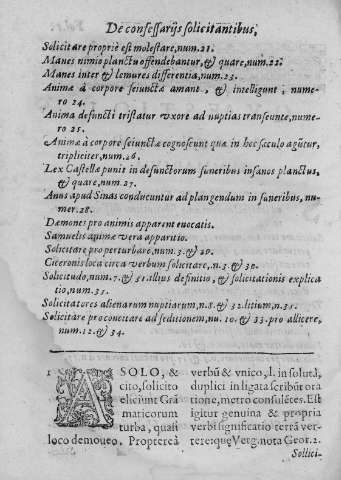 De confessarijs solicitantibus,
Solicitare propriè est molestare, num. 21.
Manes nimio planctu offendebantur, & quare, num. 22.
Manes inter & lemures differentia, num. 23.
Animæ à corpore seiunctæ amant, & intelligunt, nume-
ro 24.
Anima defuncti tristatur vxore ad nuptias transeunte, nume-
ro 25.
Animæ à corpore seiunctæ cognoscunt quæ in hoc sæculo agũtur,
tripliciter, num. 26.
Lex Castellæ punit in defunctorum funeribus insanos planctus,
& quare, num. 27.
Anus apud Sinas conducuntur ad plangendum in funeribus, nu-
mer. 28.
Dæmones pro animis apparent euocatis.
Samuelis animæ vera apparitio.
Solicitare pro perturbare, num. 3. & 29.
Ciceronis loca circa verbum solicitare, n. 3. & 30.
Solicitudo, num. 7. & 31. illius definitio, & solicitationis explica
tio, num. 35.
Solicitatores alienarum nuptiarum, n. 8. & 32. litium, n. 31.
Solicitare pro concitare ad seditionem, nu. 10. & 33. pro allicere,
num. 12. & 34.
1 A SOLO, &
cito, solicito
eliciũnt Grã
maticorum
turba, quasi
loco demoueo. Propterea
verbũ & vnico, l. in solutã,
duplici in ligata scribũt ora
tione, metro consulẽtes. Est
igitur genuina & propria
verbi significatio terrã ver-
tere: quę Verg. nota Geor. 2.
Sollici-